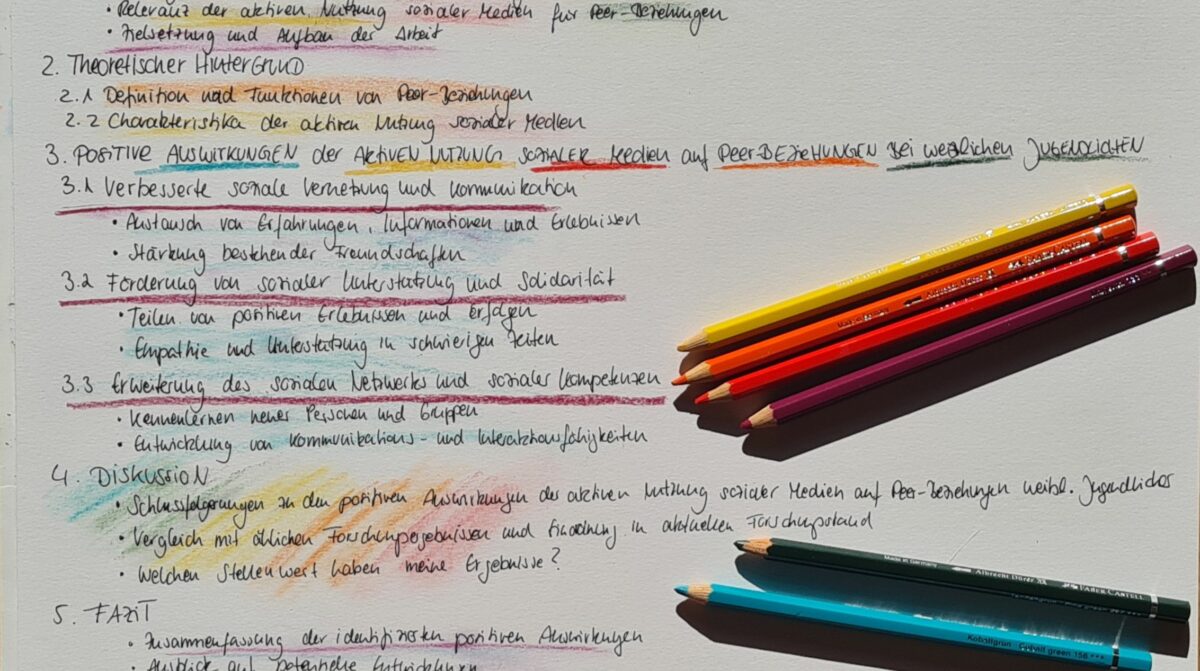 • Relevanz der aktiven Nutzung sozialer Medien für Peer-Beziehungen
• Zielsetzung und Aufbau der Arbeit
2. Theoretischer Hintergrund
2.1 Definition und Funktionen von Peer-Beziehungen
2.2 Charakteristika der aktiven Nutzung sozialer Medien
3. POSITIVE AUSWIRKUNGEN der AKTIVEN NUTZUNG SOZIALER Medien auf PeerBEZIEHUNGEN bei weiblichen JUGENDLICHEN
3.1 Verbesserte soziale Vernetzung und Kommunikation
• Austausch von Erfahrungen, Informationen und Erlebnissen
• Stärkung bestehender Freundschaften
3.2 Förderung von sozialer Unterstützung und Solidarität
• Teilen von positiven Erlebnissen und Erfolgen
• Empathie und Unterstützung in schwierigen Zeiten
3.3 Erweiterung des sozialen Netzwerks und sozialer Kompetenzen
• Kennenlernen neuer Personen und Gruppen
• Entwicklung von Kommunikations- und Interaktionsfähigkeiten
4. DISKUSSION
• Schlussfolgerungen zu den positiven Auswirkungen der aktiven Nutzung sozialer Medien auf Peer-Beziehungen weibl. Jugendlicher
• Vergleich mit ähnlichen Forschungsergebnissen und Einordnung in aktuellen Forschungsstand
• Welchen Stellenwert haben meine Ergebnisse?
Made in Germany Albrecht Dürer FABER-CASTELL
Kobaltgrün Cobalt green 156 ***
5. FAZIT
• Zusammenfassung der identifizierten positiven Auswirkungen
• Ausblick auf potentielle Entwicklungen